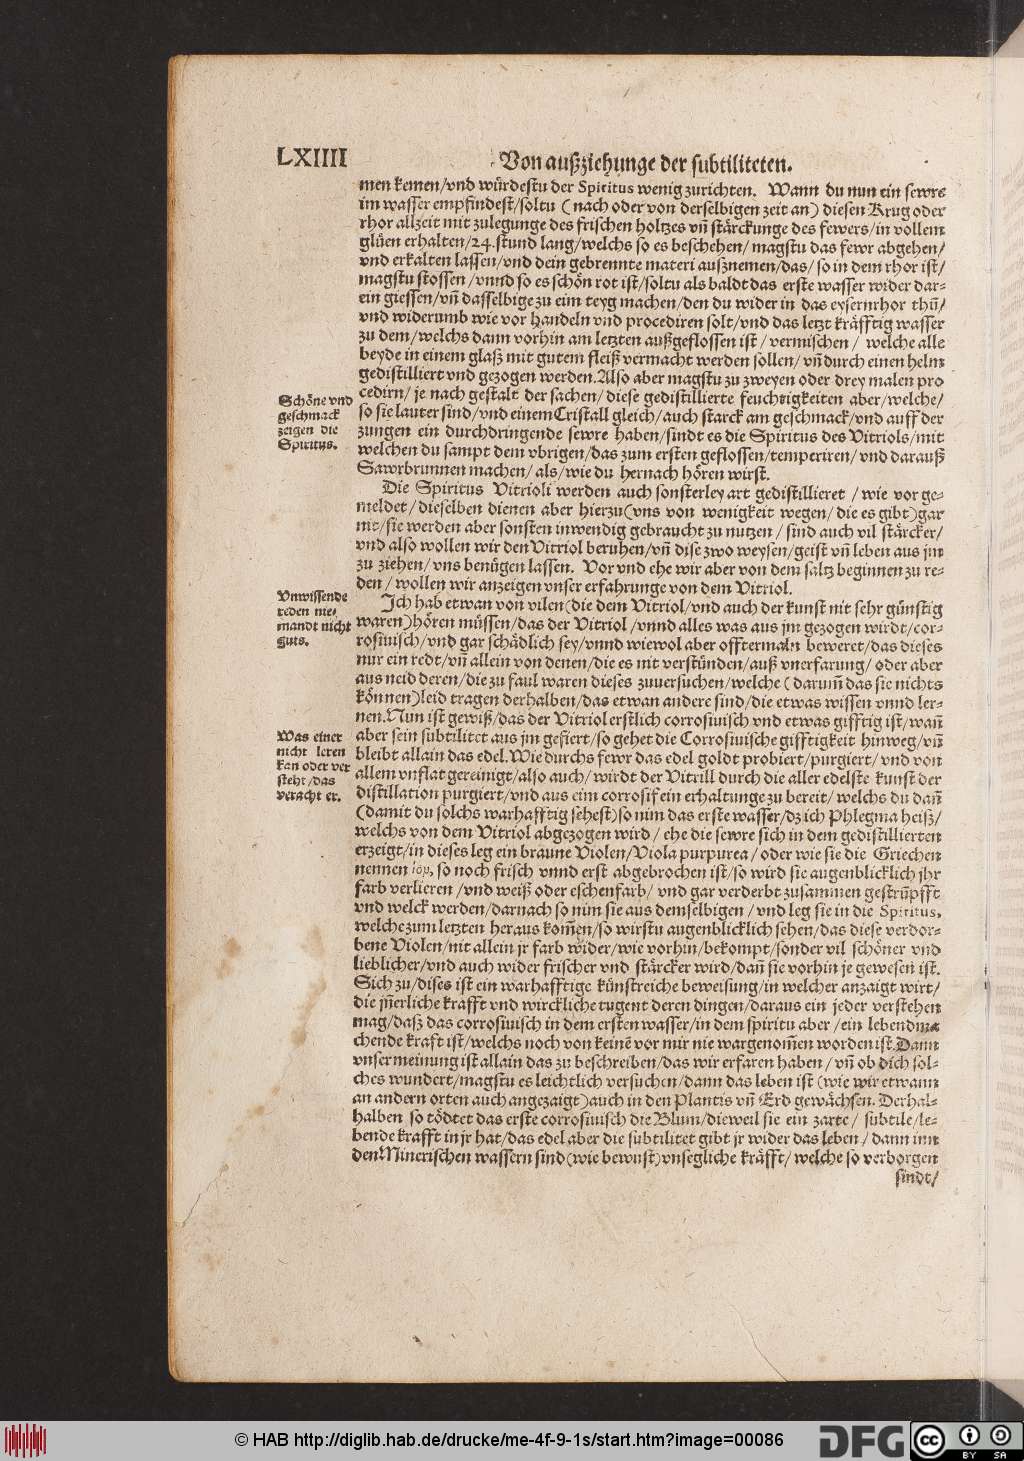 LXIIII
Von außziehunge der subtiliteten.
men kemen/vnd würdestu der Spiritus wenig zurichten. Wann du nun ein sewre
im wasser empfindest/soltu (nach oder von derselbigen zeit an) diesen Krug oder
rhor allzeit mit zulegunge des frischen holtzes vñ stärckunge des fewers/in vollem
glüen erhalten/24.stund lang/welchs so es beschehen/magstu das fewr abgehen/
vnd erkalten lassen/vnd dein gebrennte materi außnemen/das/so in dem rhor ist/
magstu stossen/vnnd so es schön rot ist/soltu als baldt das erste wasser wider dar-
ein giessen/vñ dasselbige zu eim teyg machen/den du wider in das eysernrhor thů/
vnd widerumb wie vor handeln vnd procediren solt/vnd das letzt kräfftig wasser
zu dem/welchs dann vorhin am letzten außgeflossen ist/vermischen/welche alle
beyde in einem glaß mit gutem fleiß vermacht werden sollen/vñ durch einen helm
gedistilliert vnd gezogen werden.Also aber magstu zu zweyen oder drey malen pro
cedirn/je nach gestalt der sachen/diese gedistillierte feuchtigkeiten aber/welche/
so sie lauter sind/vnd einem Cristall gleich/auch starck am geschmack/vnd auff der
zungen ein durchdringende sewre haben/sindt es die Spiritus des Vitriols/mit
welchen du sampt dem vbrigen/das zum ersten geflossen/temperiren/vnd darauß
Sawrbrunnen machen/als/wie du hernach hören wirst.
Schöne vnd
geschmack
zeigen die
Spiritus.
Die Spiritus Vitrioli werden auch sonsterley art gedistillieret/wie vor ge-
meldet/dieselben dienen aber hierzu(vns von wenigkeit wegen/die es gibt)gar
nit/sie werden aber sonsten inwendig gebraucht zu nutzen/sind auch vil stärcker/
vnd also wollen wir den Vitriol beruhen/vñ dise zwo weysen/geist vñ leben aus jm
zu ziehen/vns benügen lassen. Vor vnd ehe wir aber von dem saltz beginnen zu re-
den/wollen wir anzeigen vnser erfahrunge von dem Vitriol.
Vnwissende
reden nie-
mandt nicht
guts.
Ich hab etwan von vilen(die dem Vitriol/vnd auch der kunst nit sehr günstig
waren)hören müssen/das der Vitriol/vnnd alles was aus jm gezogen wirdt/cor-
rosiuisch/vnd gar schädlich sey/vnnd wiewol aber offtermaln beweret/das dieses
nur ein redt/vñ allein von denen/die es nit verstünden/auß vnerfarung/oder aber
aus neid deren/die zu faul waren dieses zuuersuchen/welche(darumb das sie nichts
können)leid tragen derhalben/das etwan andere sind/die etwas wissen vnnd ler-
nen.Nun ist gewiß/das der Vitriol erstlich corrosiuisch vnd etwas gifftig ist/wañ
aber sein subtilitet aus jm gefiert/so gehet die Corrosiuische gifftigkeit hinweg/vñ
bleibt allain das edel.Wie durchs fewr das edel goldt probiert/purgiert/vnd von
allem vnflat gereinigt/also auch/wirdt der Vitrill durch die aller edelste kunst der
distillation purgiert/vnd aus eim corrosif ein erhaltunge zu bereit/welchs du dañ
Was einer
nicht leren
kan oder ver
steht/das
veracht er.
(damit du solchs warhafftig sehest)so nim das erste wasser/dz ich Phlegma heiß/
welchs von dem Vitriol abgezogen wird/ehe die sewre sich in dem gedistillierten
erzeigt/in dieses leg ein braune Violen/Viola purpurea/oder wie sie die Griechen
nennen ἴον, so noch frisch vnnd erst abgebrochen ist/so wird sie augenblicklich jhr
farb verlieren/vnd weiß oder eschenfarb/vnd gar verderbt zusammen gestrüpfft
vnd welck werden/darnach so nim sie aus demselbigen/vnd leg sie in die Spiritus,
welche zum letzten heraus komẽn/so wirstu augenblicklich sehen/das diese verdor-
bene Violen/nit allein jr farb wider/wie vorhin/bekompt/sonder vil schöner vnd
lieblicher/vnd auch wider frischer vnd stärcker wird/dañ sie vorhin je gewesen ist.
Sich zu/dises ist ein warhafftige künstreiche beweisung/in welcher anzaigt wirt/
die jñerliche krafft vnd wirckliche tugent deren dingen/daraus ein jeder verstehen
mag/daß das corrosiuisch in dem ersten wasser/in dem spiritu aber/ein lebendma
chende kraft ist/welchs noch von keinẽ vor mir nie wargenom̃en worden ist.Dann
vnser meinung ist allain das zu beschreiben/das wir erfaren haben/vñ ob dich sol-
ches wundert/magstu es leichtlich versuchen/dann das leben ist(wie wir etwann
an andern orten auch angezaigt)auch in den Plantis vñ Erd gewächsen.Derhal-
halben so tödtet das erste corrosiuisch die Blum/dieweil sie ein zarte/subtile/le-
bende krafft in jr hat/das edel aber die subtilitet gibt jr wider das leben/dann inn
den Minerischen wassern sind(wie bewust)vnsegliche kräfft/welche so verborgen
sindt/
© HAB http://diglib.hab.de/drucke/me-4f-9-1s/start.htm?image=00086
DFG
cc
BY SA